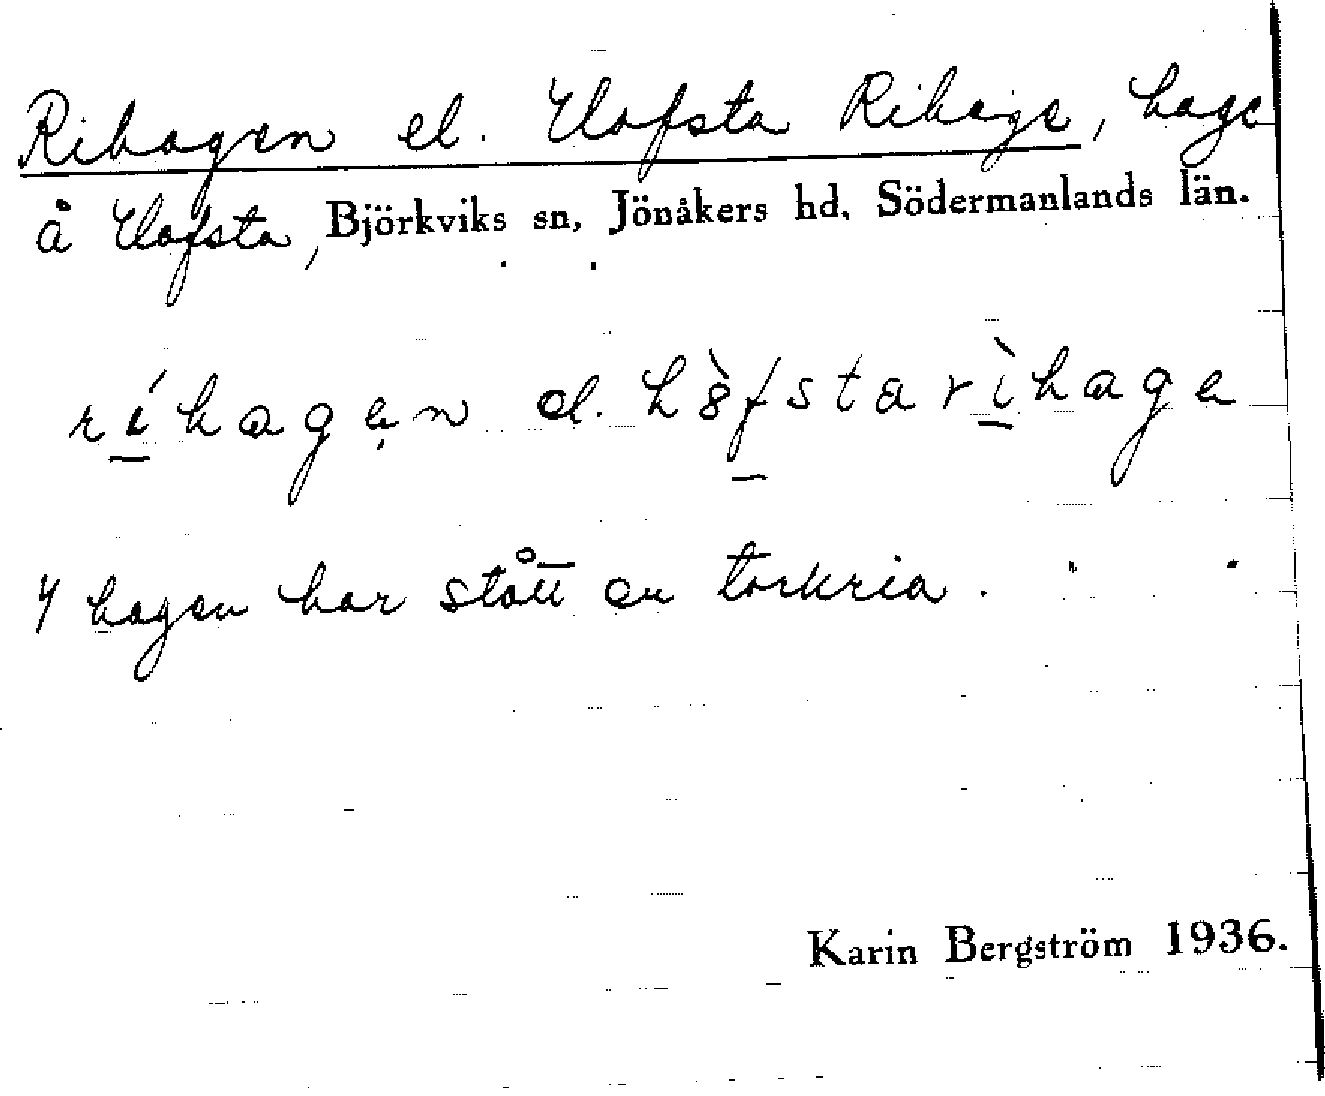 Rihagen el. Hofsta Rihage, hage
å Hofsta, Björkviks sn, Jönåkers hd, Södermanlands län.
ríhagen el. hòfstarìhage
I hagen har stått en torkria.
Karin Bergström 1936.